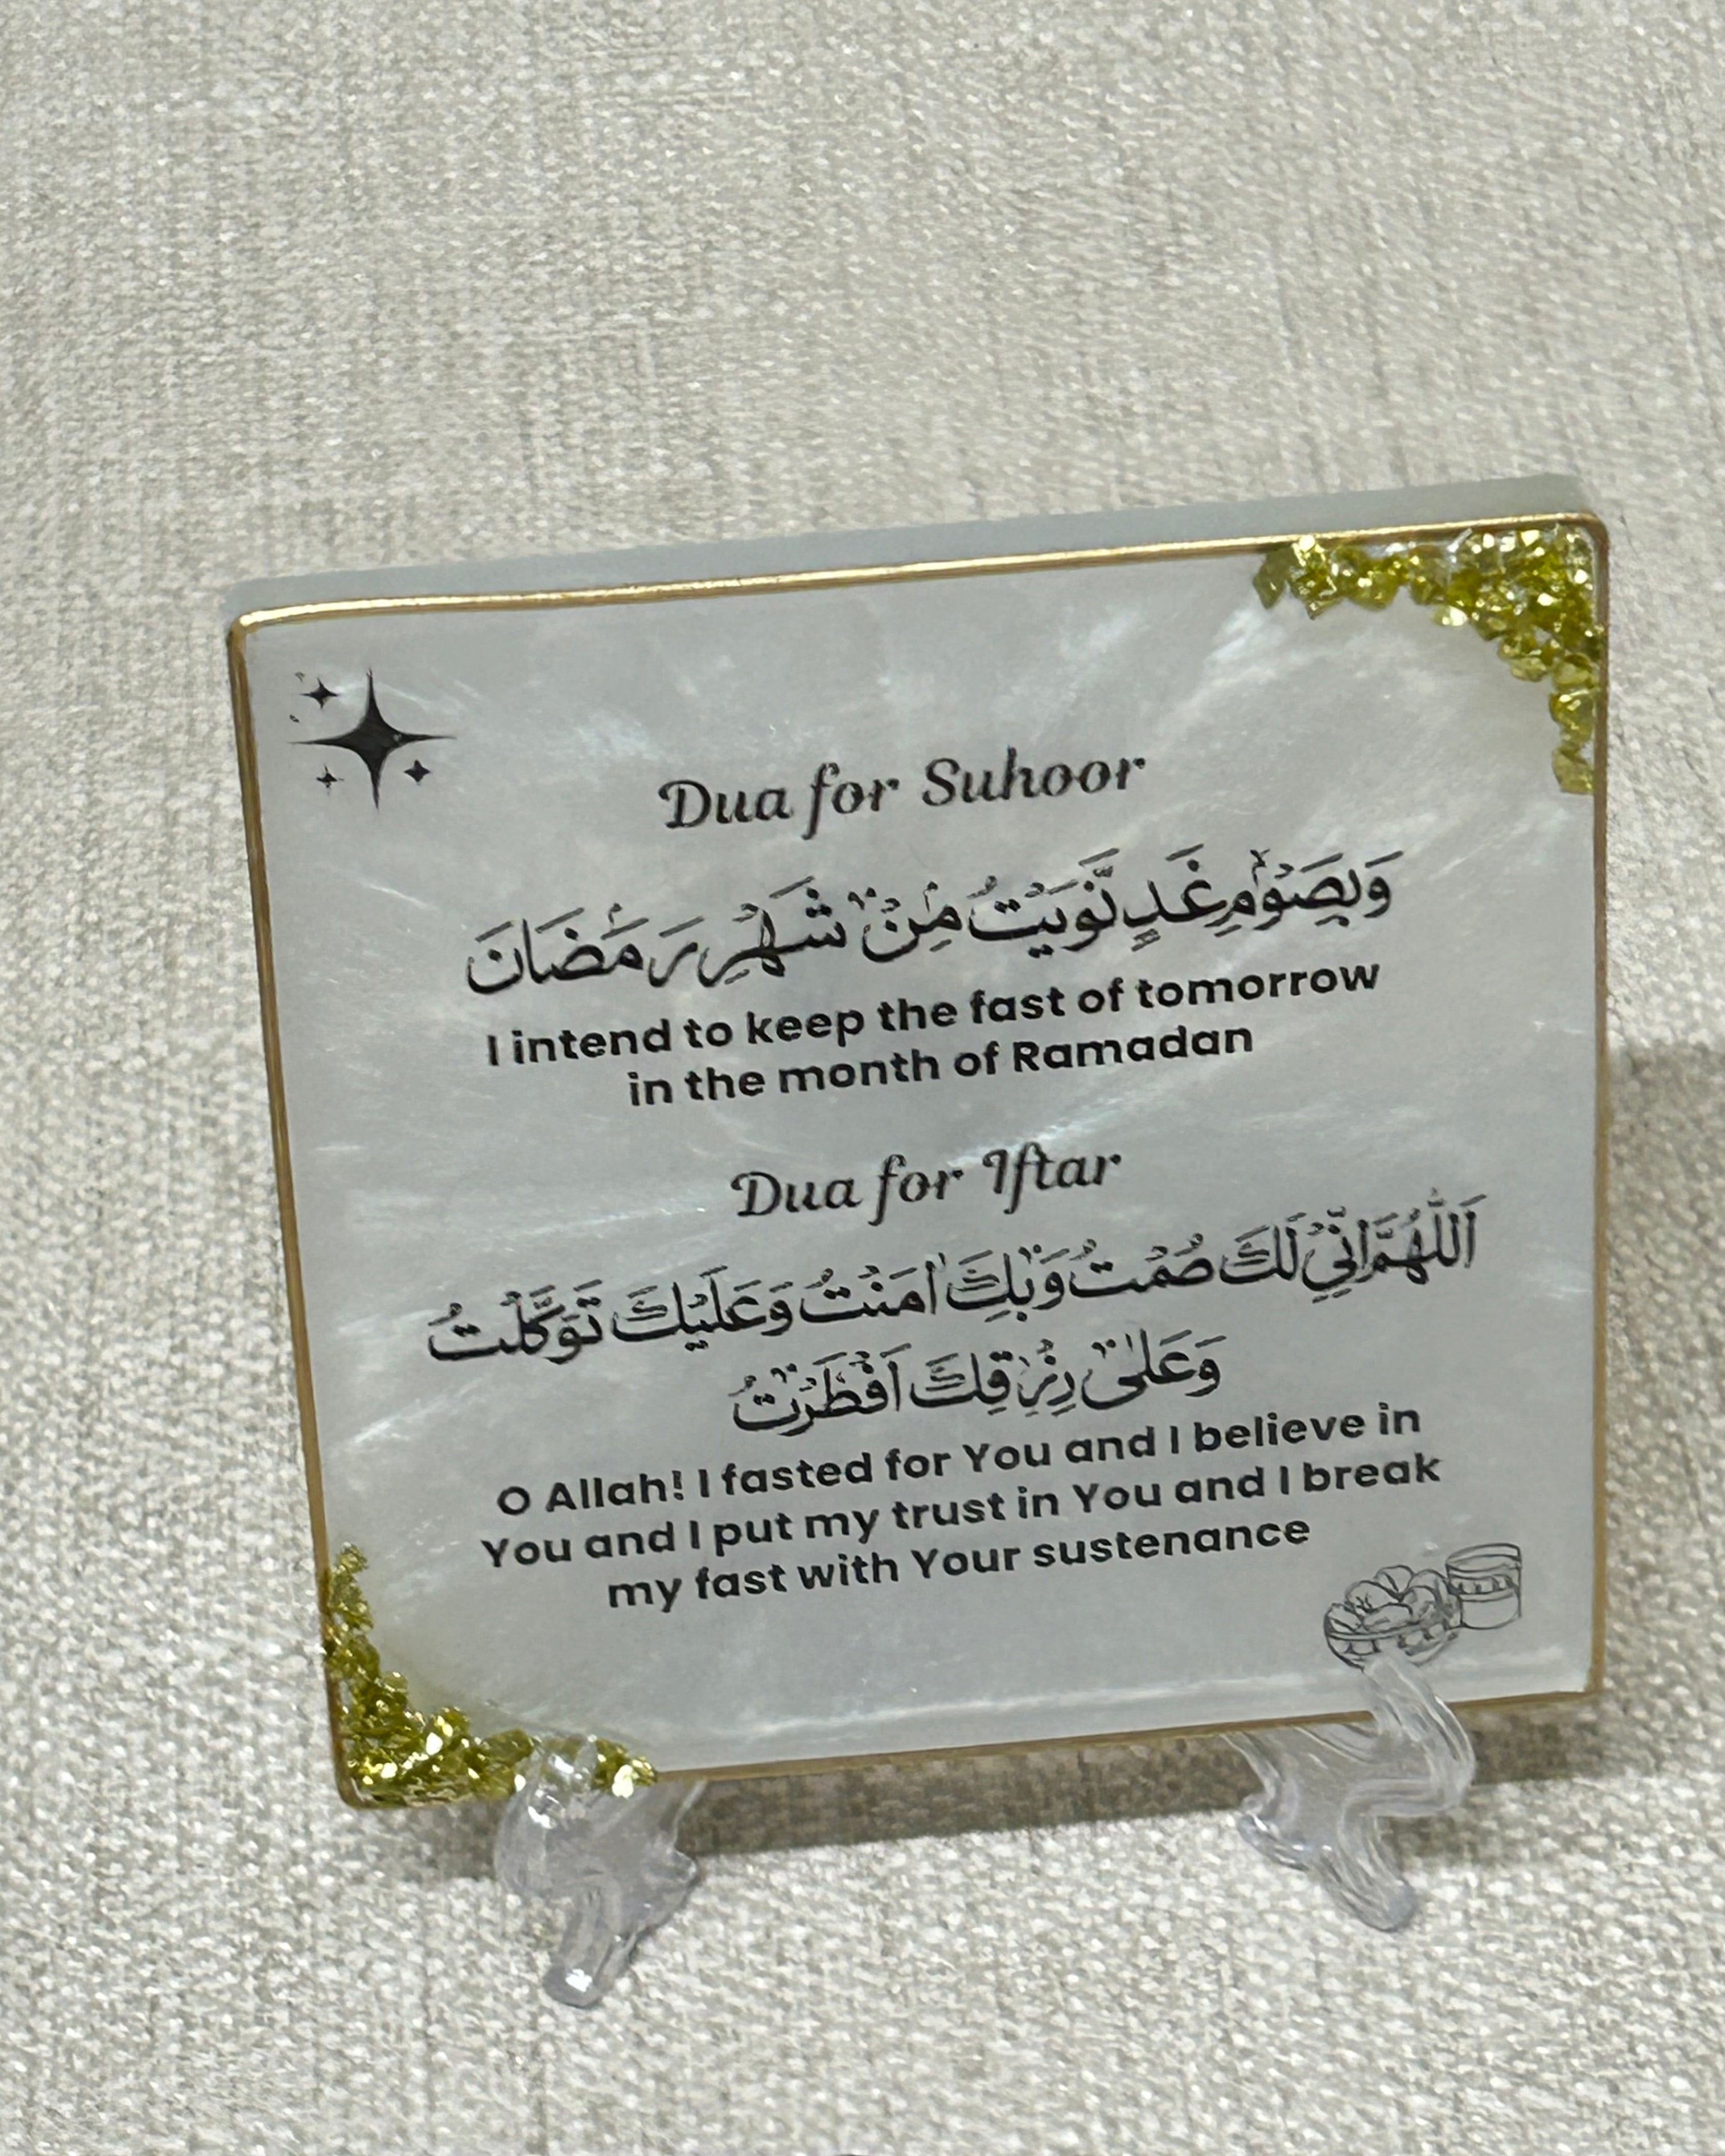 Dua for Suhoor
وَبِصَوْمِ غَدٍ نَّوَيْتُ مِنْ شَهْرِ رَمَضَانَ
I intend to keep the fast of tomorrow
in the month of Ramadan
Dua for Iftar
اَللّٰهُمَّ اِنِّي لَكَ صُمْتُ وَبِكَ اٰمَنْتُ وَعَلَيْكَ تَوَكَّلْتُ
وَعَلٰى رِزْقِكَ اَفْطَرْتُ
O Allah! I fasted for You and I believe in
You and I put my trust in You and I break
my fast with Your sustenance